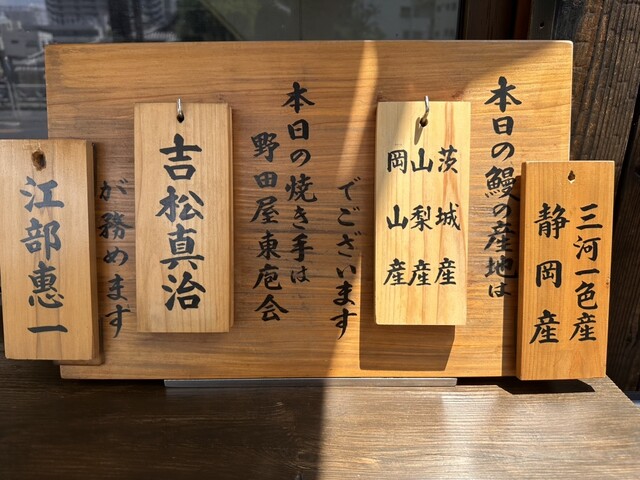 三河一色産
静岡産
本日の鰻の産地は
茨城産
山梨産
岡山産
でございます
本日の焼き手は
野田屋東庖会
吉松真治
が務めます
江部惠一